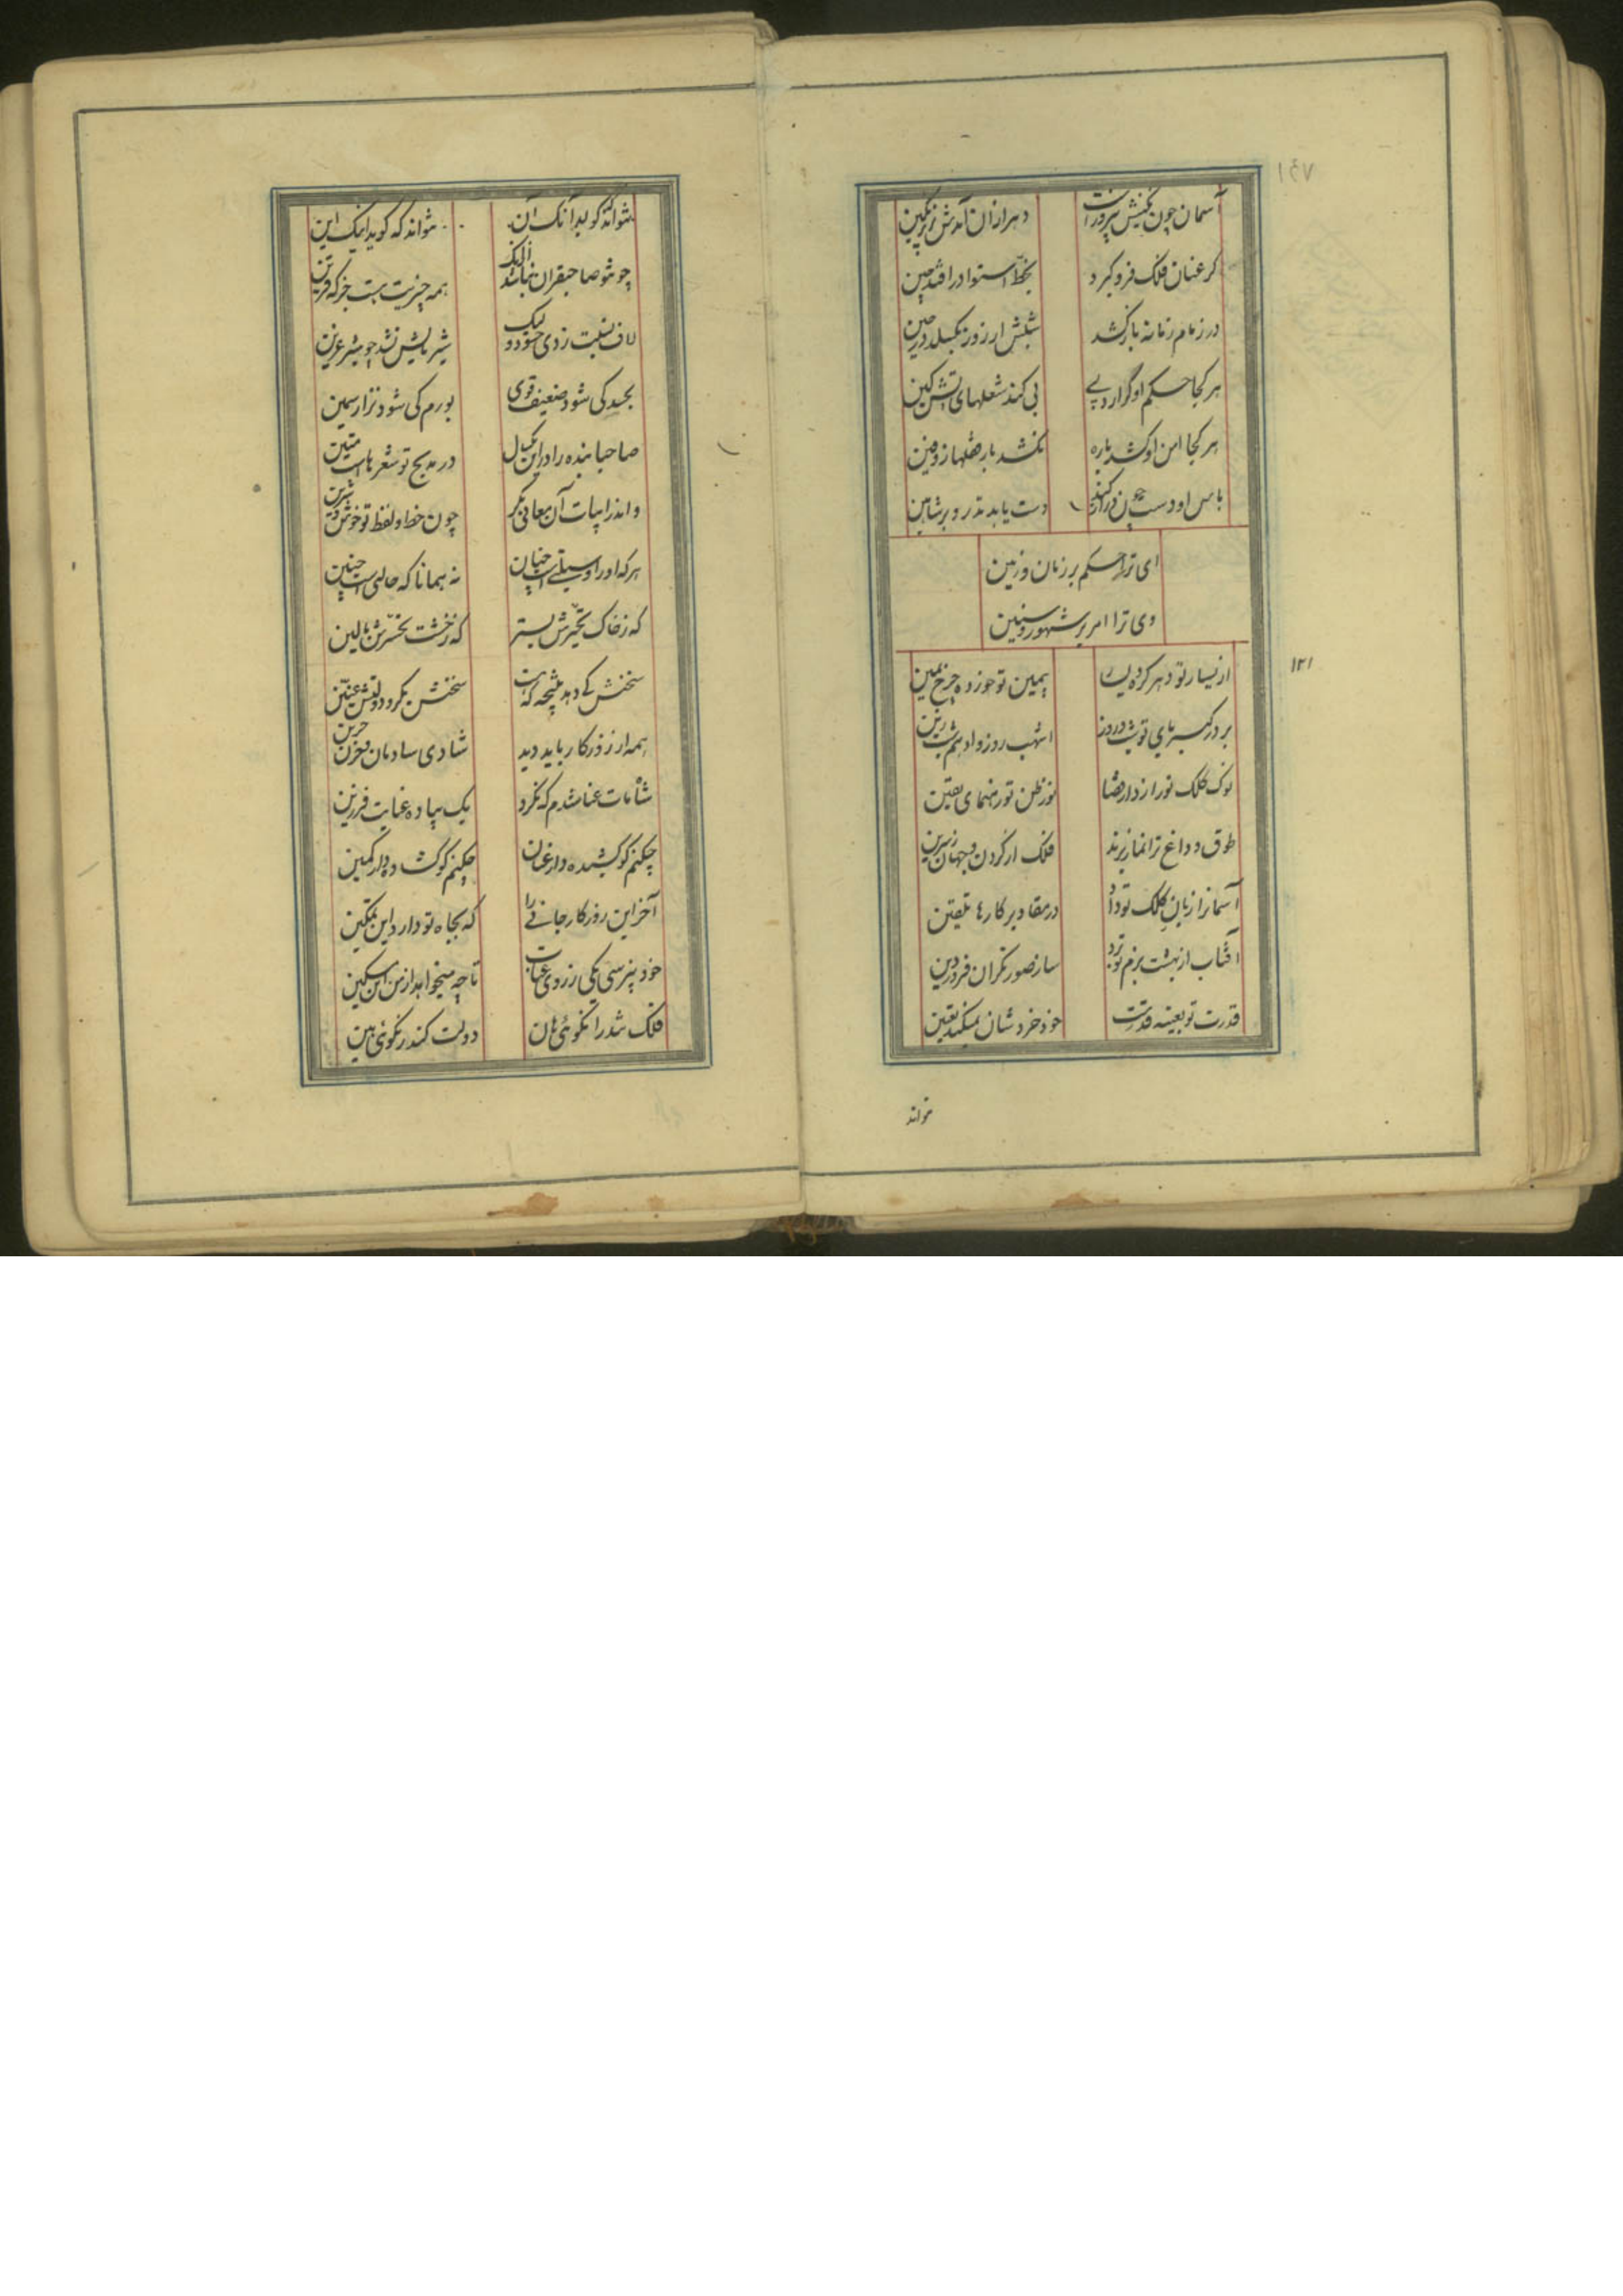 ۱۴۷
آسمان چون نگینش پیروزه است دهر ازان آمدش بزیر نگین
گر عنان فلک فرو گیرد بخط استوا در افتد چین
ور زمام زمانه باز کشد شبش از روز بگسلد در حین
هر کجا حکم او گزارد پی پی کند شعلهای آتش کین
هر کجا امن او کشد باره نکشد بار قفلها زوفین
باس او دست چون دراز کند دست یابد تذرو بر شاهین
ای ترا حکم بر زمان و زمین
وی ترا امر بر شهور و سنین
۱۲۱
از یسار تو دهر کرده یسار بیمین تو خورده چرخ یمین
بر در کبریای تو شب و روز اشهب روز و ادهم شب زین
نوک کلک تو رازدار قضا نور ظن تو رهنمای یقین
طوق و داغ ترا نماز برند فلک از گردن و جهان ز سرین
آسمانرا زبان کلک تو داد در مقادیر کارها تلقین
آفتاب از بهشت بزم تو برد ساز صورتگران فروردین
قدرت تو بعینه قدرتست خود خرد شان نمیکند تعیین
تواند
نتواند که گوید آنک آن نتواند که گوید اینک این
چو تو صاحبقران نباشد ازانک همه چیزیت هست جز که قرین
لاف نسبت زدی حسود ولیک شیر بالش نشد چو شیر عرین
بجسد کی شود ضعیف قوی بورم کی شود نزار سمین
صاحبا بنده را در این یکسال در مدیح تو شعرهاست متین
واندر ابیات آن معانی بکر چون خط و لفظ تو خوش و شیرین
هر که او را وسیلتیست چنان نه همانا که حالتیست چنین
که ز خاک تحیرش بستر که ز خشت تحسرش بالین
سخنش کی دهد نتیجه که هست سخنش بکر و دولتش عنین
همه از روزگار باید دید شادی شادمان و حزن حزین
شاه مات عنا شدم که نکرد یک پیاده عنایت فرزین
چکنم گو کشیده دار عنان چکنم گو گشاده دار کمین
آخر این روزگار جانی را که بجاه تو دارد این تمکین
خود نپرسی یکی ز روی عتاب تا چه میخواهد از من این مسکین
فلک تند را نگوئی هان دولت کند را نگوئی هین